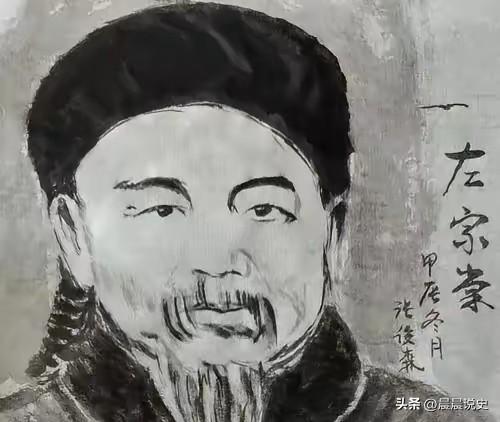 一左宗棠
甲辰冬月
张俊森
头条 @晨晨说史